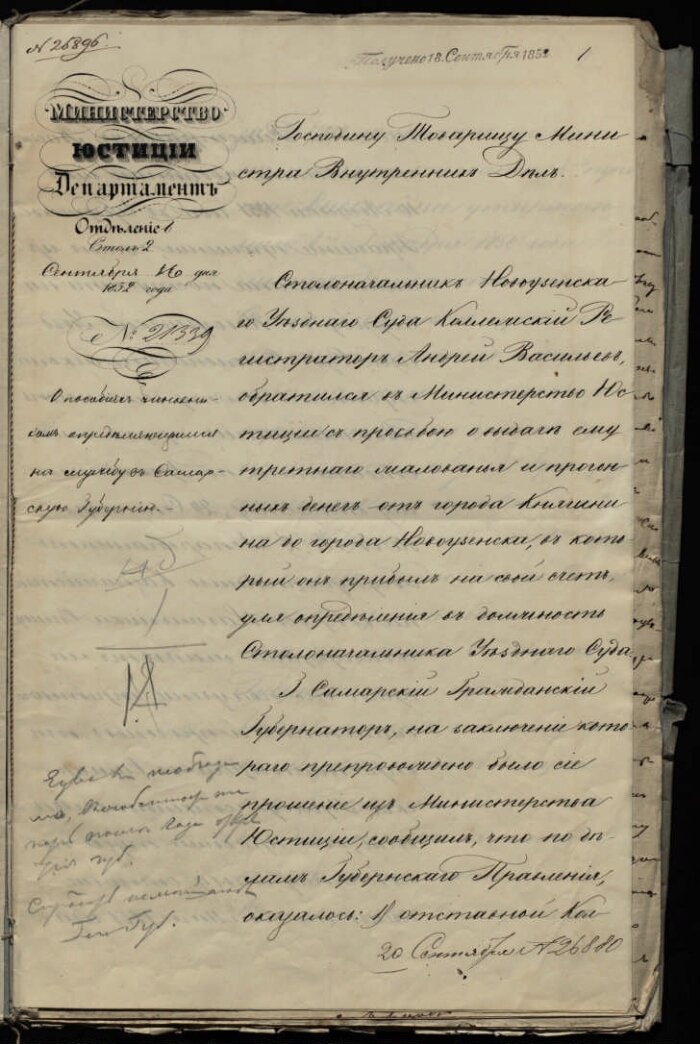 N 25896.
Получено 18. Сентября 1852
1
МИНИСТЕРСТВО
ЮСТИЦІИ
Департаментъ
Отдѣленіе 1
Столъ 2
Сентября 16 дня
1852 года
№ 21339
О пособіяхъ чиновни-
камъ опредѣляющимся
на службу въ Самар-
скую Губернію.
Господину Товарищу Мини
стра Внутреннихъ Дѣлъ.
Столоначальникъ Новоузенска
го Уѣзднаго Суда Коллежскій Ре
гистраторъ Андрей Васильевъ,
обратился въ Министерство Юс
тиціи съ просьбою о выдачѣ ему
третнаго жалованья и прогон
ныхъ денегъ отъ города Княгини
на до города Новоузенска, въ кото
рый онъ прибылъ на свой счетъ,
для опредѣленія въ должность
Столоначальника Уѣзднаго Суда
Г. Самарскій Гражданскій
Губернаторъ, на заключеніе кото
раго препровождено было сіе
прошеніе изъ Министерства
Юстиціи, сообщилъ, что по дѣ
ламъ Губернскаго Правленія,
оказалось: 1) отставной Кол
20 Сентября N 26880